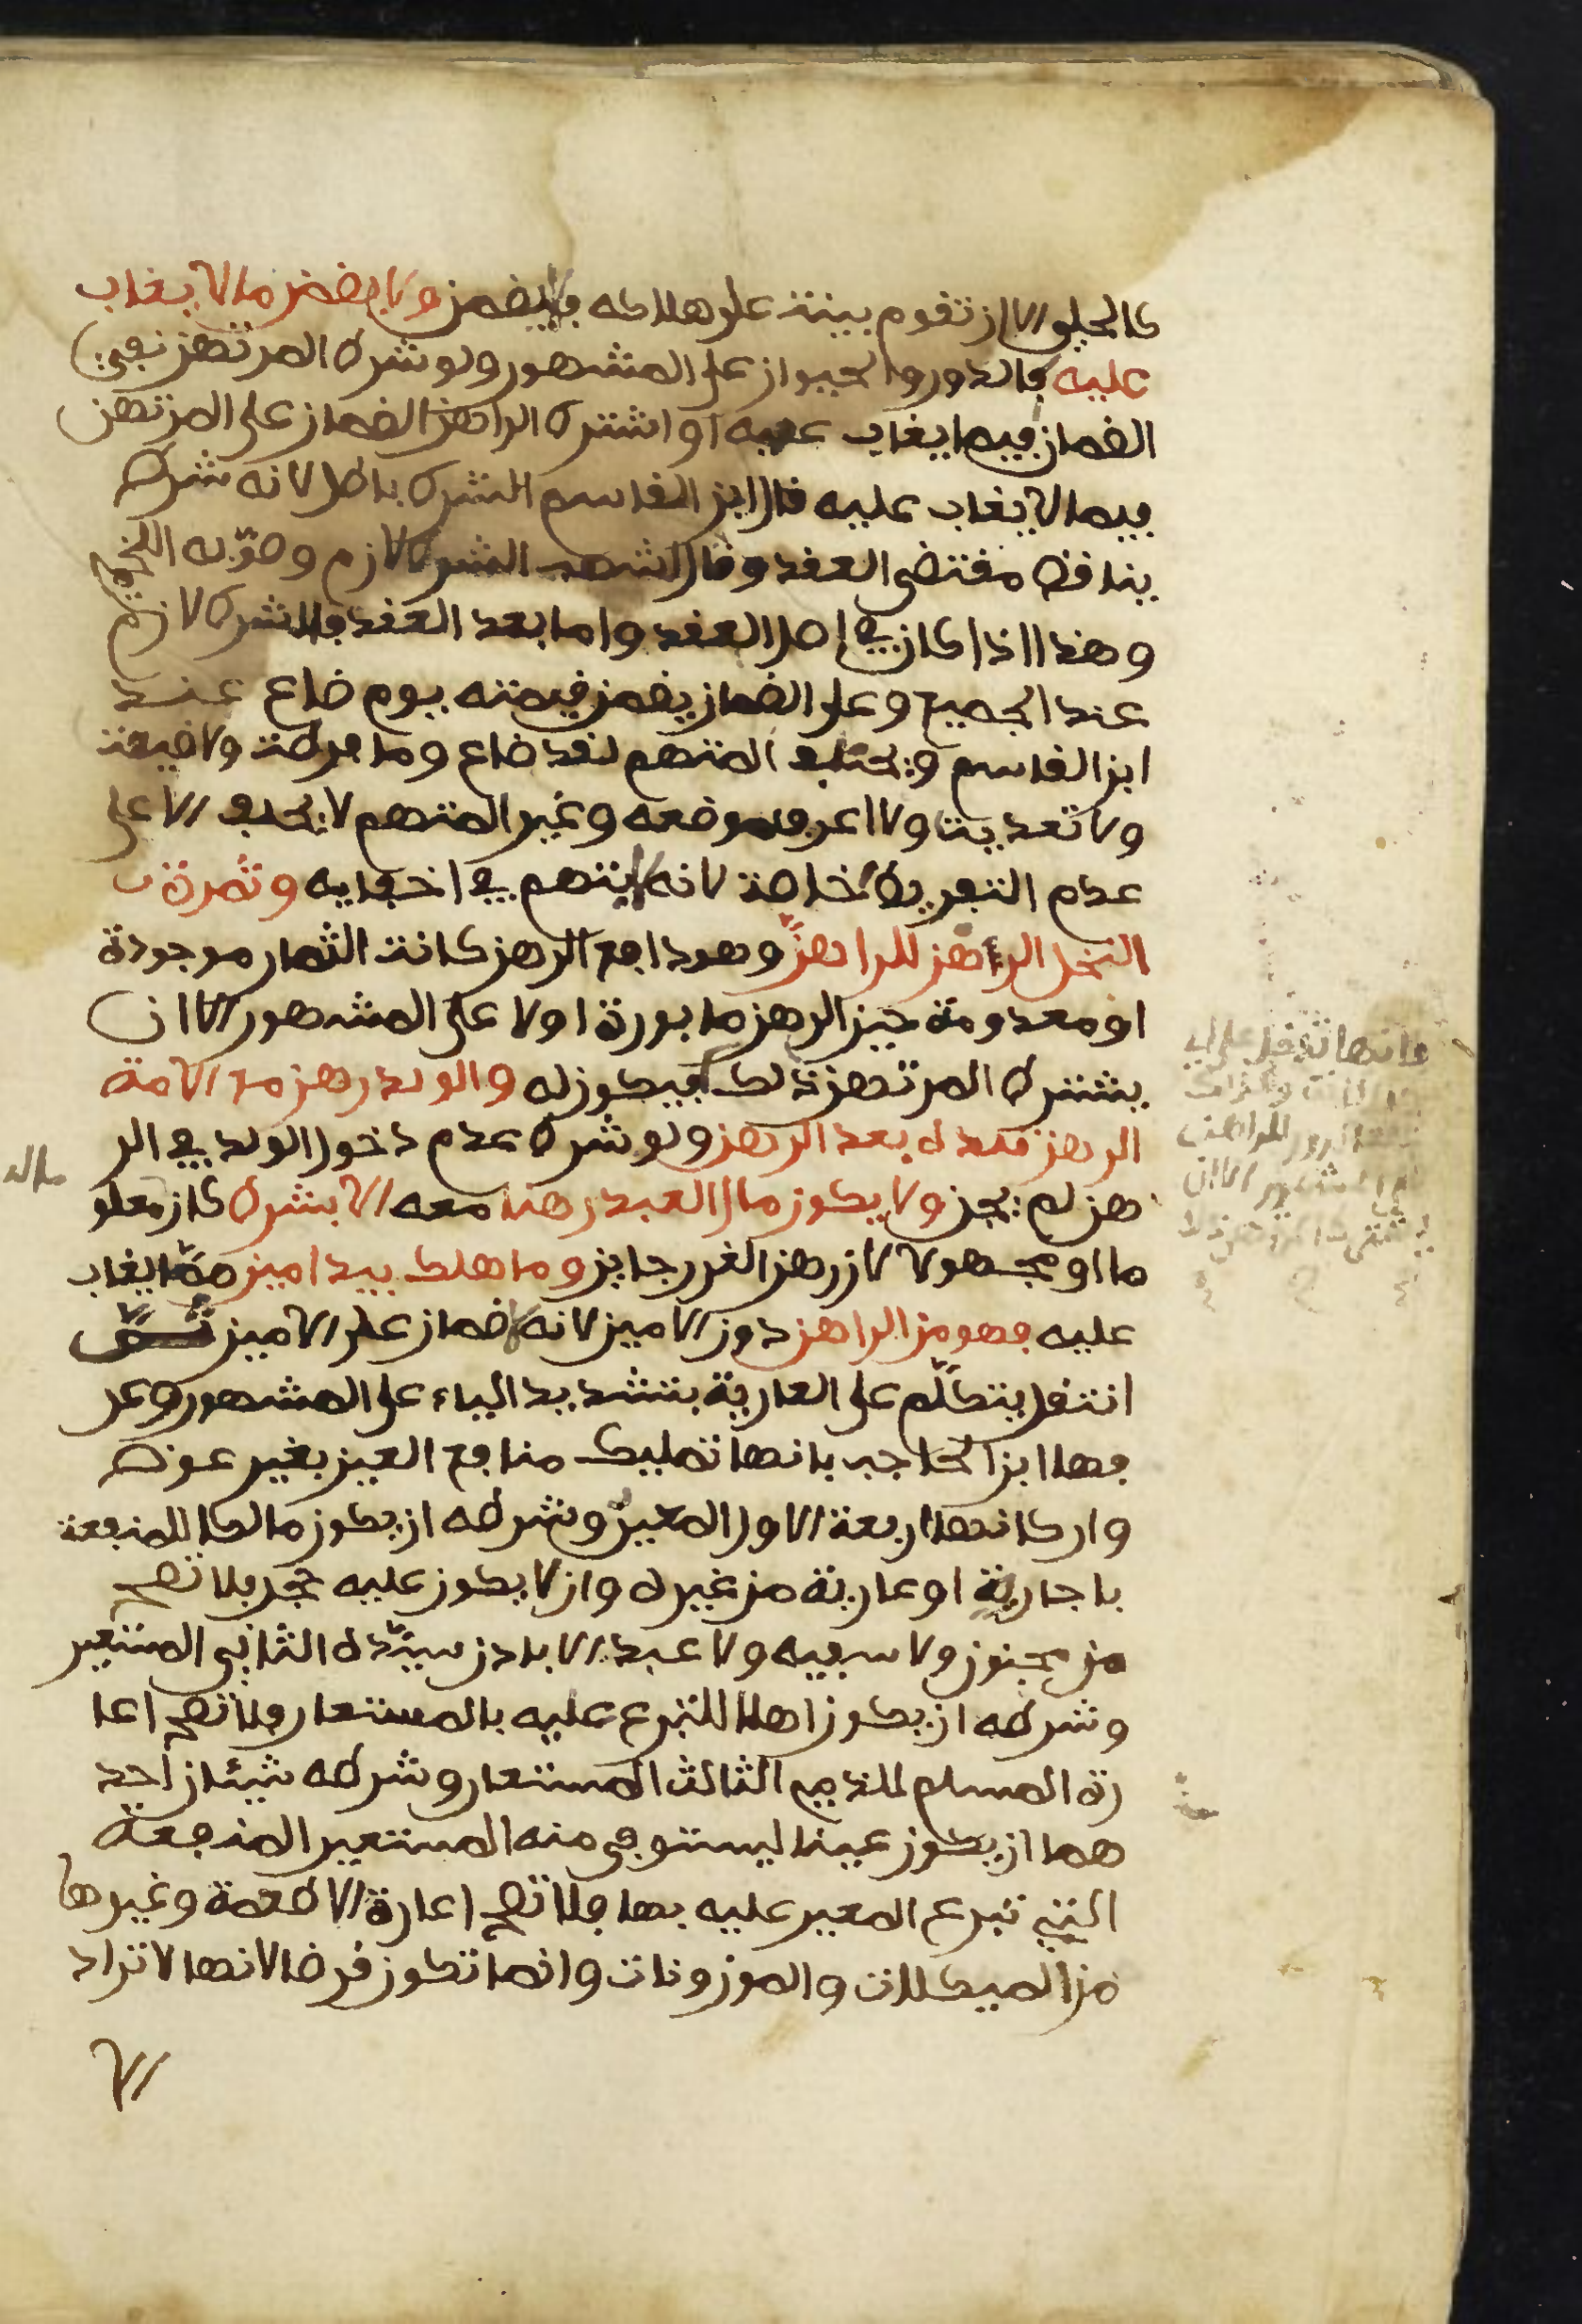 كالحلي الا ان تقوم بينة على هلاكه فلا يضمن ولا يضمن ما لا يغاب
عليه كالدور والحيوان على المشهور ولو شرط المرتهن نفي
الضمان فيما يغاب عليه او اشترط الراهن الضمان على المرتهن
فيما لا يغاب عليه قال ابن القاسم الشرط باطل لانه شرط
يناقض مقتضى العقد وقال اشهب الشرط لازم وصوبه اللخمي
وهذا اذا كان في اصل العقد واما بعد العقد فالشرط لازم
عند الجميع وعلى الضمان يضمن قيمته يوم ضاع عند
ابن القاسم ويحلف المتهم لقد ضاع وما فرطت ولا ضيعت
ولا تعديت ولا اعرف موضعه وغير المتهم لا يحلف الا على
عدم التفريط خاصة لانه لا يتهم في اخفايه وثمرة
النخل الرهن للراهن وهو دافع الرهن كانت الثمار موجودة
او معدومة حين الرهن مابورة او لا على المشهور الا ان
يشترط المرتهن ذلك فيكون له والولد رهن مع الامة
الرهن تلده بعد الرهن ولو شرط عدم دخول الولد في الر
هن لم يجز ولا يكون مال العبد رهنا معه الا بشرط كان معلو
ما او مجهولا لان رهن الغرر جايز وما هلك بيد امين مما يغاب
عليه فهو من الراهن دون الامين لانه لا ضمان على الامين ثم
انتقل يتكلم على العارية بتشديد الياء على المشهور وعر
فها ابن الحاجب بانها تمليك منافع العين بغير عوض
واركانها اربعة الاول المعير وشرطه ان يكون مالكا للمنفعة
باجارية او عارية من غيره وان لا يكون عليه حجر فلا تصح
من مجنون ولا سفيه ولا عبد الا باذن سيده الثاني المستعير
وشرطه ان يكون اهلا للتبرع عليه بالمستعار فلا تصح اعا
رة المسلم للذمي الثالث المستعار وشرطه شيئان احد
هما ان يكون عينا ليستوفي منه المستعير المنفعة
التي تبرع المعير عليه بها فلا تصح اعارة الاطعمة وغيرها
من المكيلات والموزونات وانما تكون قرضا لانها لا تراد
الا
ماله